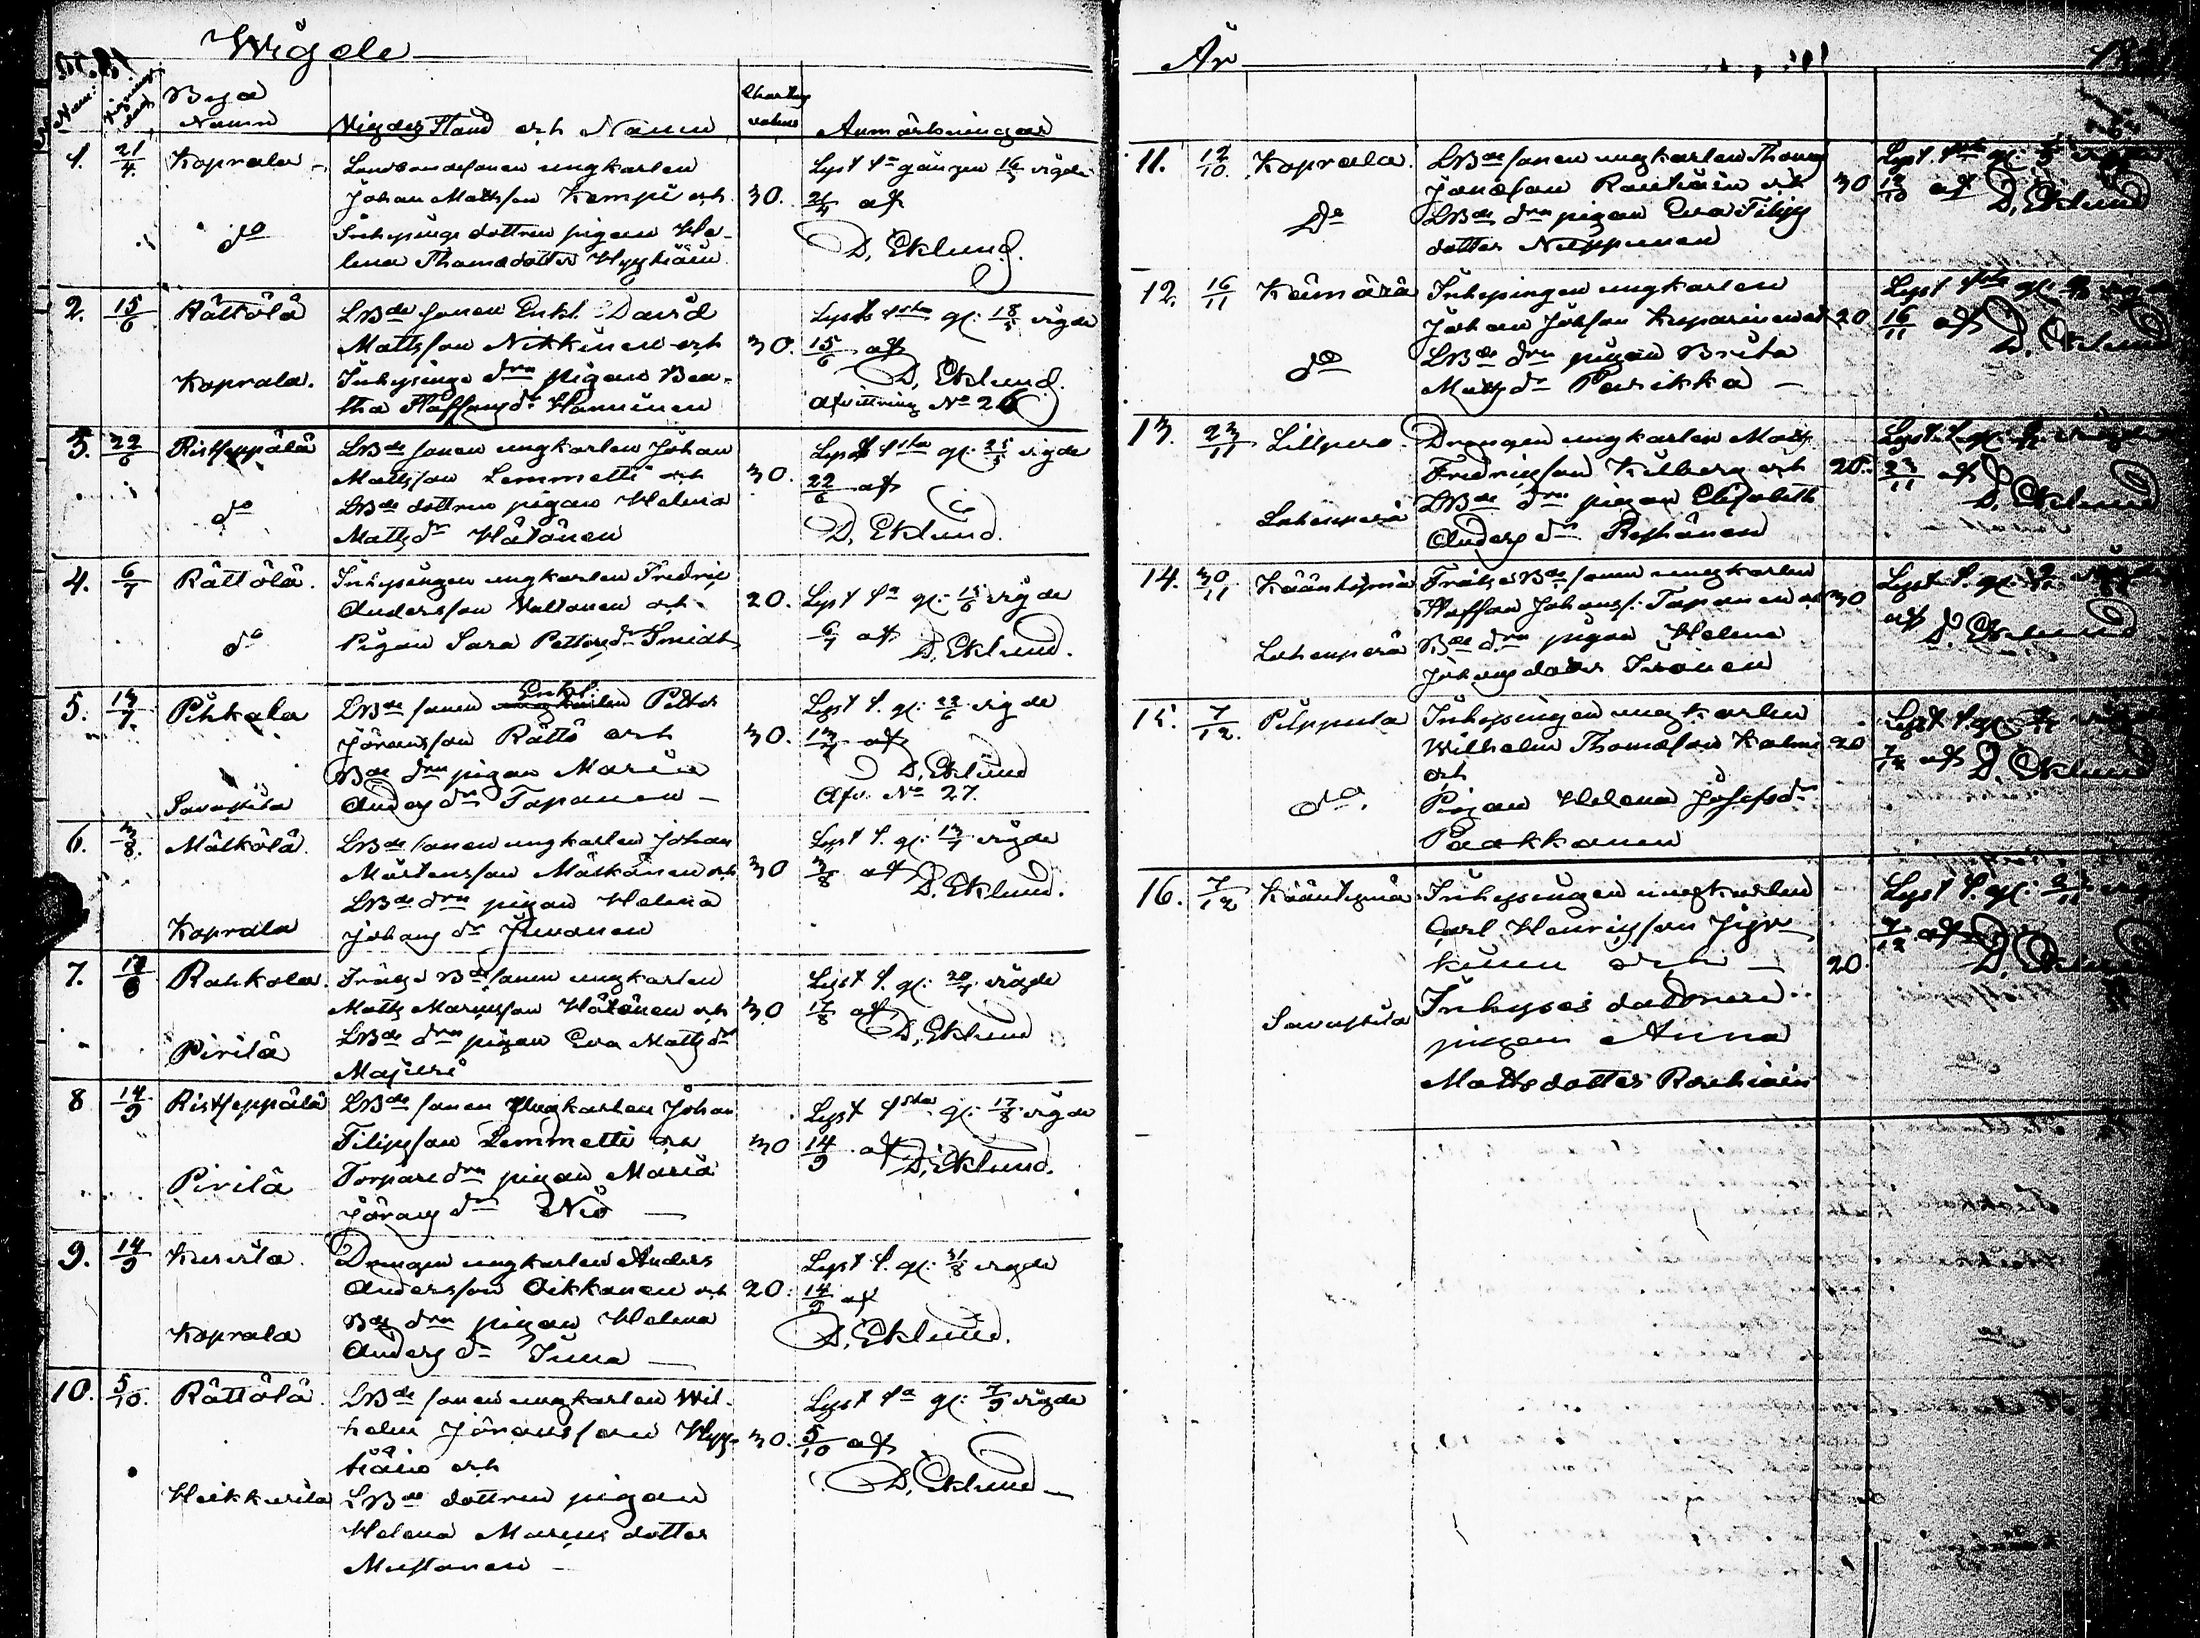 Wigde
Num: Vignings dag
Bya Namn
Vigdes Stånd och Namn
Charta valeur
Anmärkningar
1. 21/4 Koprala
Landbondesonen ungkarlen
Johan Mattsson Kemppi och 30.
do Inhysings dottren pigan He-
lena Thomasdotter Hyytiäin
Lyst 1a gången vigde
21/4 af
D. Eklund.
2. 15/6 Rättölä
LBde sonen Enkl. David
Mattsson Nikkinen och 30.
Koprala. Inhysings drn pigan Bea-
tha Staffansdr Hanninen
Lyst 1sta gg: 18/5 vigde
15/6 af
D. Eklund.
Afvittring No 26
3. 22/6 Ristseppälä
LBde sonen ungkarlen Johan
Mattsson Lemmetti och 30.
do LBde dottren pigan Helena
Mattsdr Hätönen
Lyst 1sta gg: 25/5 vigde
22/6 af
D. Eklund.
4. 6/7 Rättölä.
Inhysingen ungkarlen Fredric
Andersson Valtonen och 20.
do Pigan Sara Pettersdr Smidt
Lyst 1a gg: 15/6 vigde
6/7 af D. Eklund.
5. 13/7. Pihkala
LBde sonen Enkl: Petter
Jöransson Rättö och 30.
Bde drn pigan Maria
Savastila Andersdr Tapanen
Lyst 1. gg: 22/6 vigde
13/7 af
D. Eklund
Afv. No 27.
6. 3/8. Mälkölä.
LBde sonen ungkarlen Johan
Mårtensson Mälkönen och 30
LBde drn pigan Helena
Koprala Johansdr Juvonen
Lyst 1. gg: 13/7 vigde
3/8 af D. Eklund.
7. 17/8 Rahkola.
Frälse Bde sonen ungkarlen
Matts Marcusson Hätönen och 30
Pirilä LBde drn pigan Eva Mattsdr
Majuri
Lyst 1. gg: 20/7 vigde
17/8 af
D. Eklund
8 14/9 Ristseppälä
LBde sonen Ungkarlen Johan
Filipsson Lemmetti och 30
Pirilä Torpare drn pigan Maria
Jöransdr Niö
Lyst 1sta gg: 17/8 vigde
14/9 af D. Eklund.
9. 14/9 Kuisila.
Drengen ungkarlen Anders
Andersson Oikkonen och 20.
Koprala Bde drn pigan Helena
Andersdr Inna
Lyst 1. gg: 31/8 vigde
14/9 af
D. Eklund.
10. 5/10. Rättölä.
LBde sonen ungkarlen Wil-
helm Jöransson Hyy- 30.
tiäin och
Heikkurila LBde dottren pigan
Helena Marcus dotter
Mustonen
Lyst 1a gg: 7/9 vigde
5/10 af
D. Eklund
År
11. 12/10. Koprala.
LBde sonen ungkarlen Thomas
Jonasson Rautiain och 30
Do LBde drn pigan Eva Filips
dotter Nuppunen
Lyst 1sta gg: vigde
12/10 af D. Eklund
12. 16/11 Keimärä
Inhysingen ungkarlen
Johan Johsson Kuparinen och 20.
do LBde drn pigan Brita
Mattsdr Parikka
Lyst 1sta gg: vigde
16/11 af D. Eklund
13. 23/11 Lillpero.
Drengen ungkarlen Matts
Fredricsson Kilberg och 20.
Lahenperä LBde drn pigan Elisabeth
Andersdr Rephönen
Lyst 1. gg: vigde
23/11 af
D. Eklund
14. 30/11 Kääntymä
Frälse Bde sonen ungkarlen
Staffan Johanss. Tapanen och 30
Lahenperä Bde drn pigan Helena
Johans dotter Ironen
Lyst 1. gg: vigde
af D. Eklund
15. 7/12. Pilppula
Inhysingen ungkarlen
Wilhelm Thomasson Kolmi 20
och
do. Pigan Helena Josefsdr
Paakkonen
Lyst 1. gg: vigde
7/12 af D. Eklund
16. 7/12 Kääntymä
Inhysingen ungkarlen
Carl Henricsson
kinen och 20.
Inhyses dottren
Savastila pigan Anna
Matts dotter Rautiain
Lyst 1. gg:
7/12 af
D. Eklund